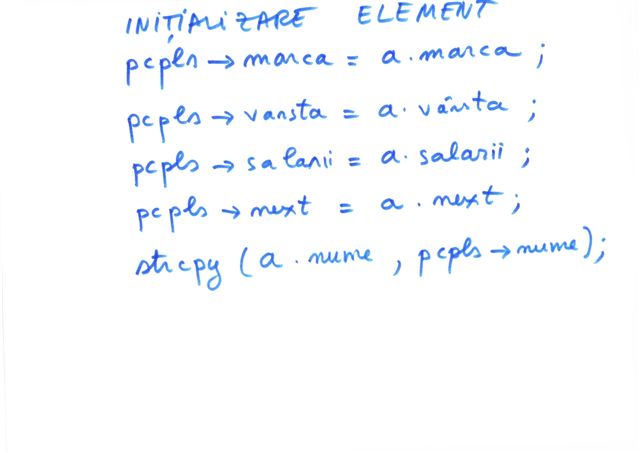 INIȚIALIZARE ELEMENT
pcpls → marca = a.marca ;
pcpls → varsta = a.vârsta ;
pcpls → salarii = a.salarii ;
pcpls → next = a.next ;
strcpy (a.nume , pcpls → nume);